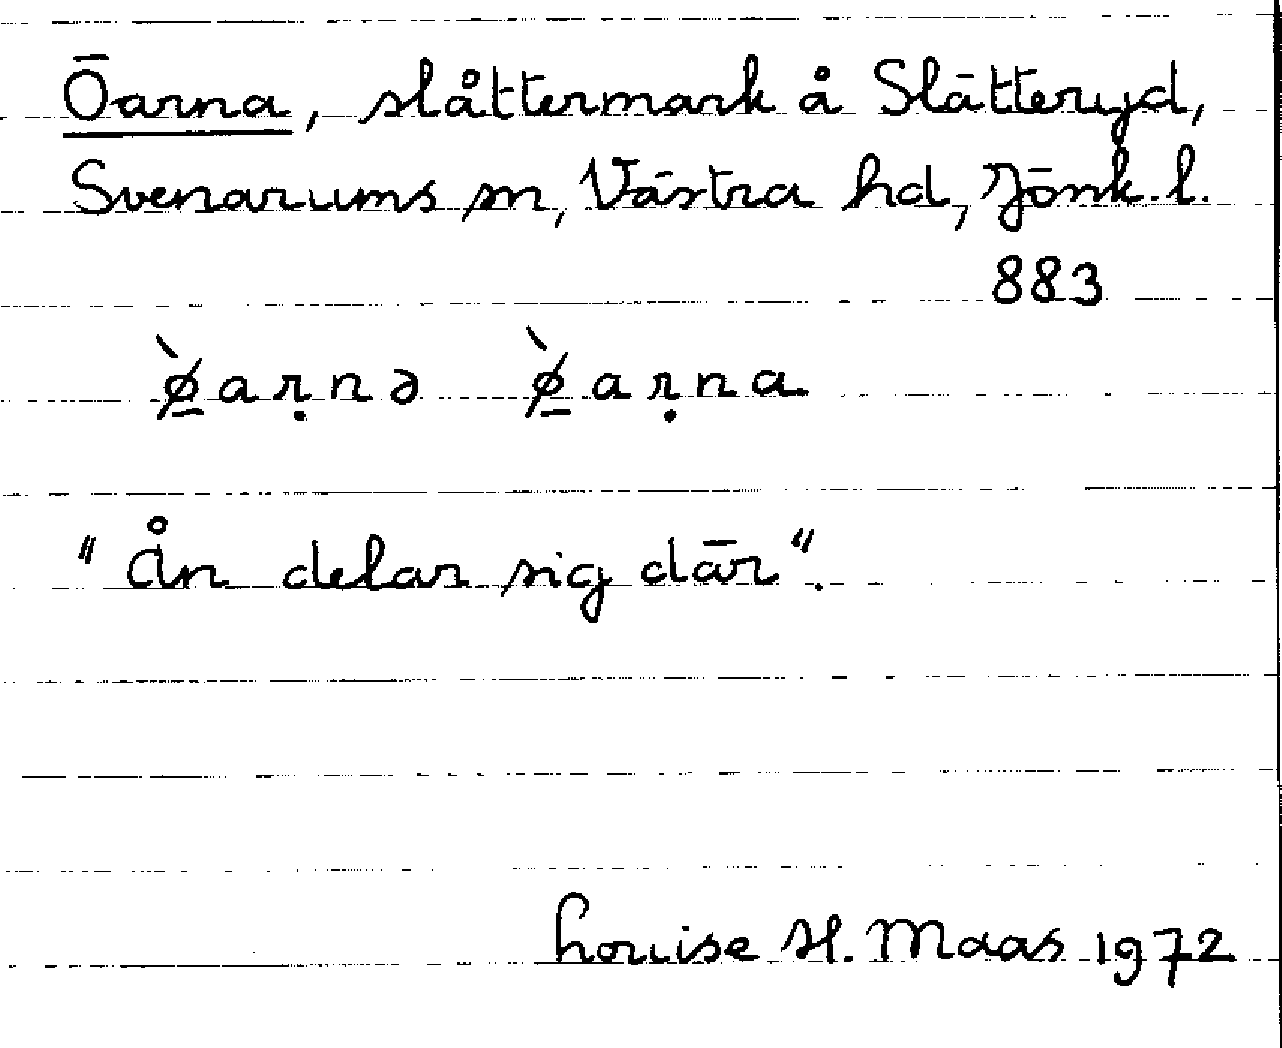 Öarna, slåttermark å Slätteryd,
Svenarums sn, Västra hd, Jönk.l.
883
ø̠̀aṛnə ø̠̀aṛna
"Ån delar sig där".
Louise H. Maas 1972